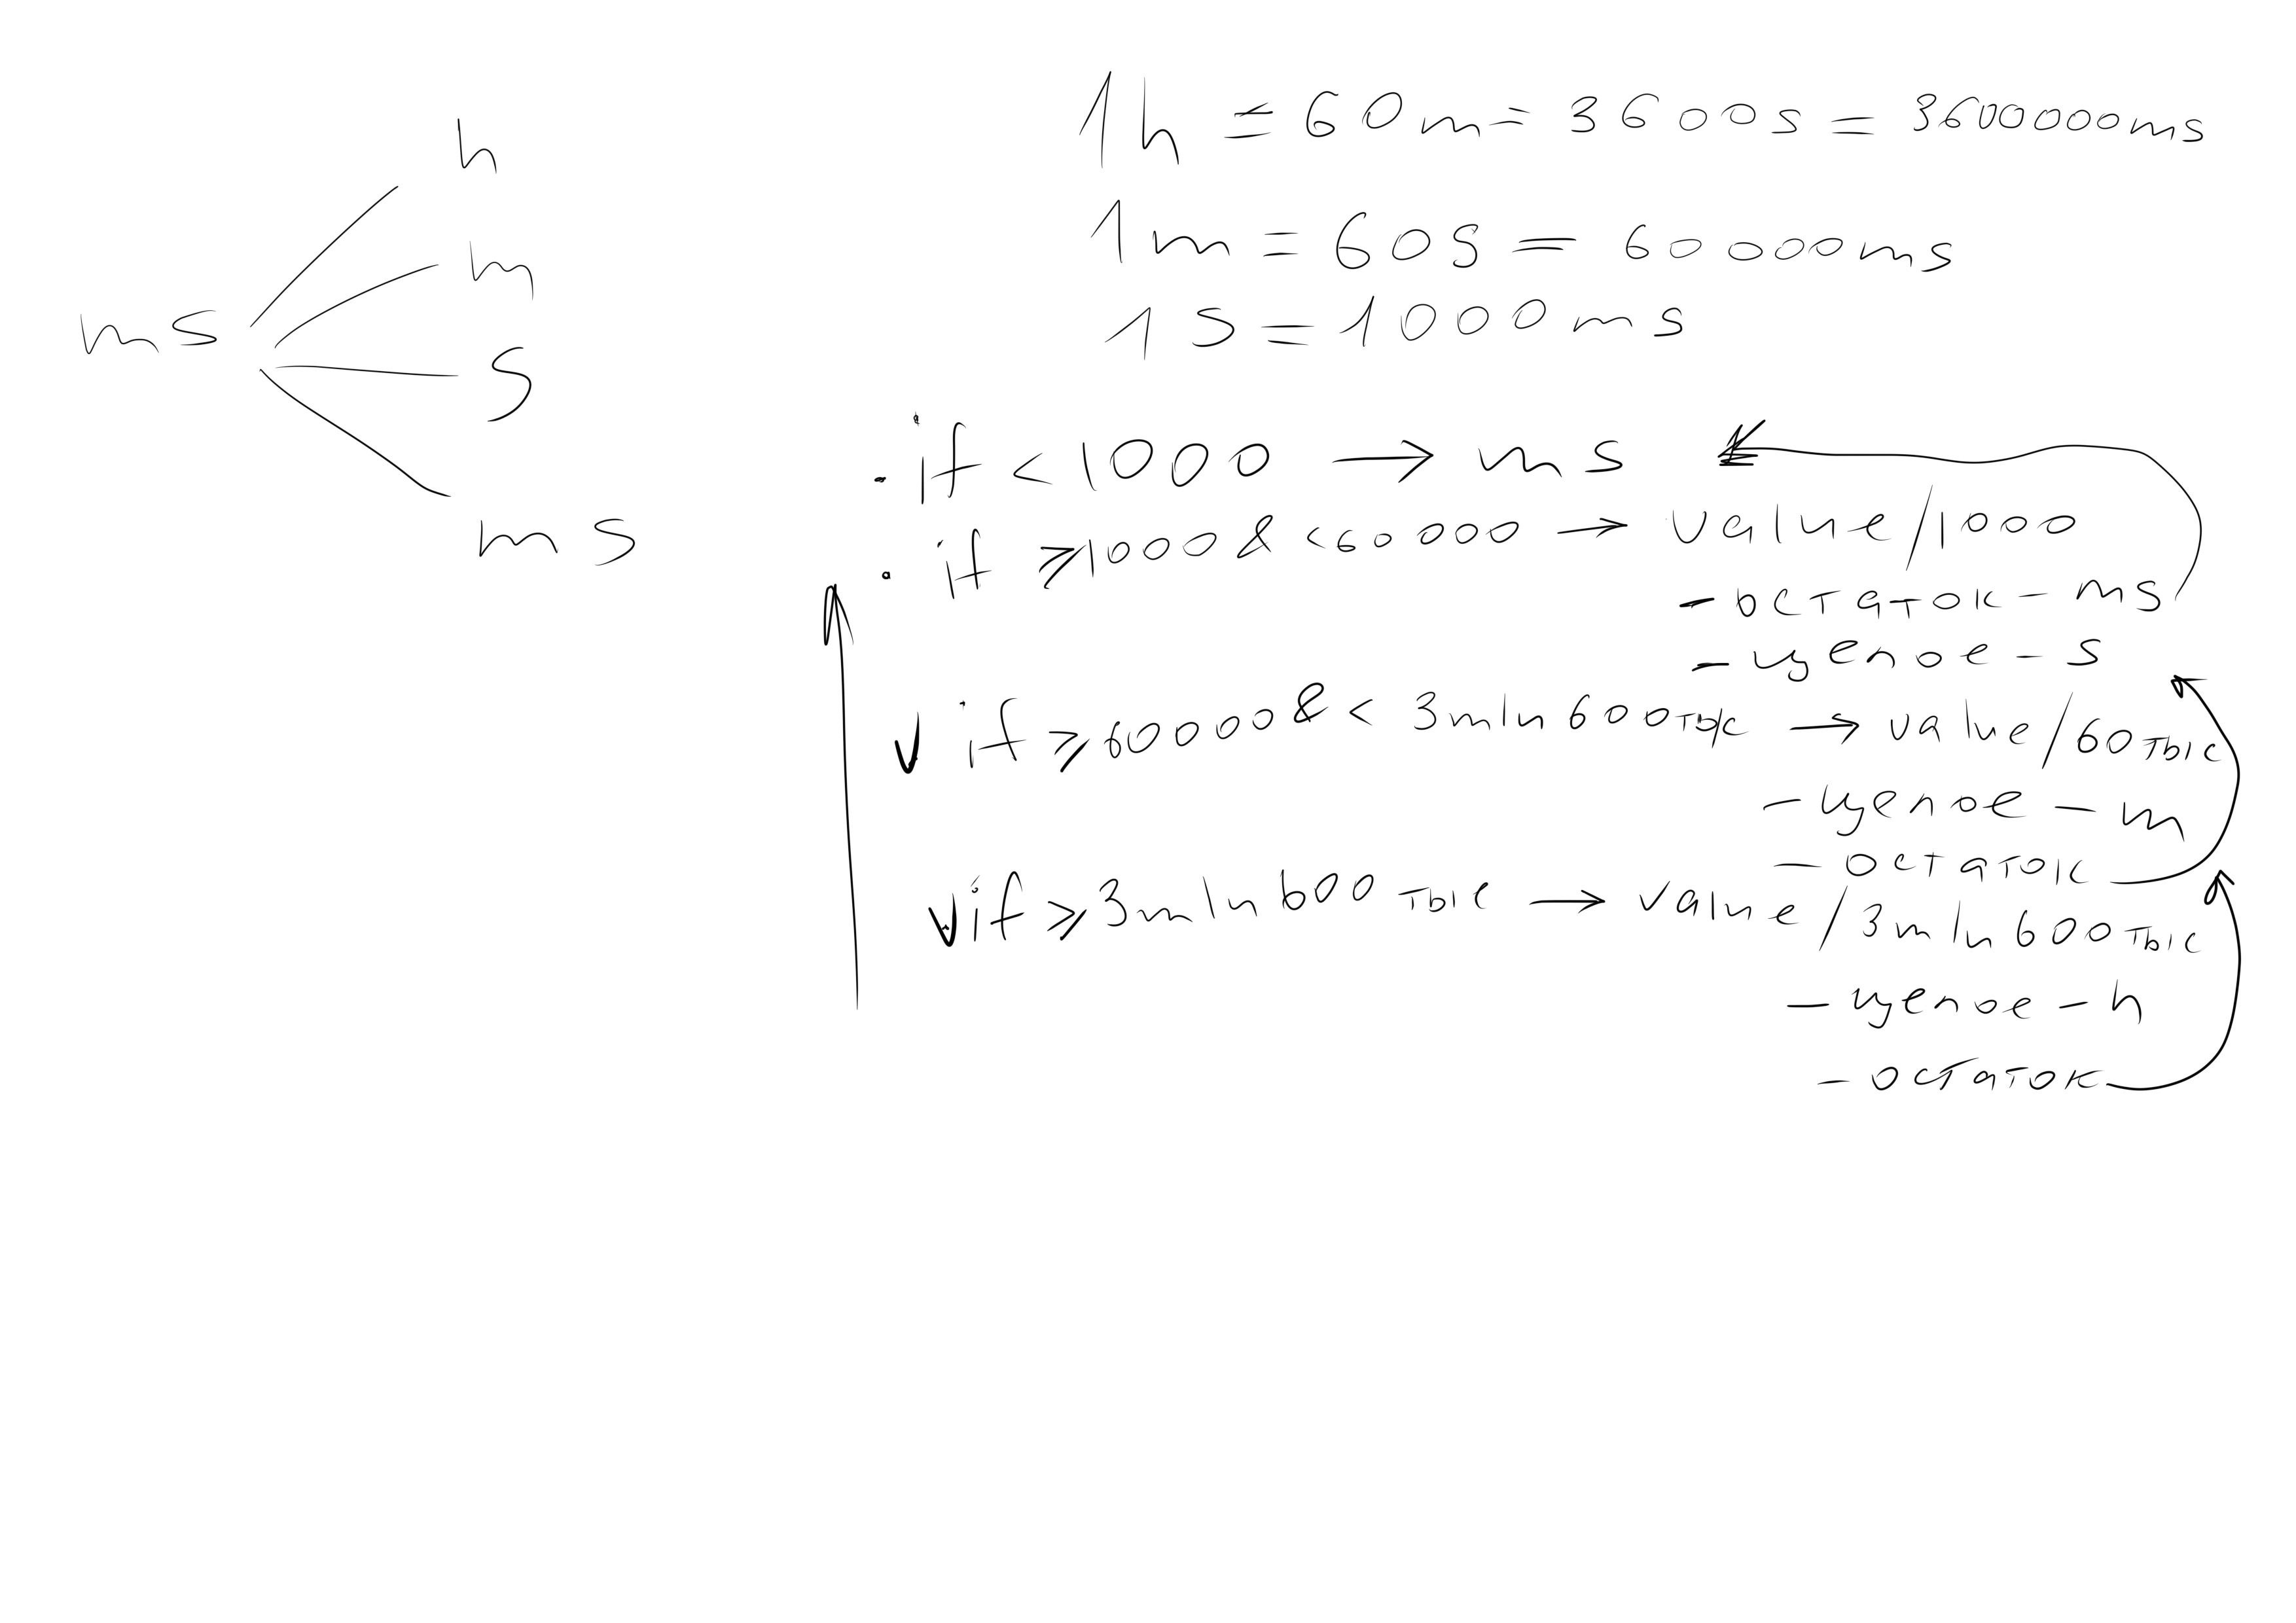 h
m
ms
s
ms
1h = 60m = 3600s = 3600000ms
1m = 60s = 60000ms
1s = 1000ms
· if < 1000 → ms
· if ⩾1000 & <60000 → value/1000
- остаток - ms
- целое - s
v if ⩾ 60000 & < 3mln 600тыс → value/60тыс
- целое - m
- остаток
v if ⩾ 3mln 600 тыс → value/3mln 600тыс
- целое - h
- остаток